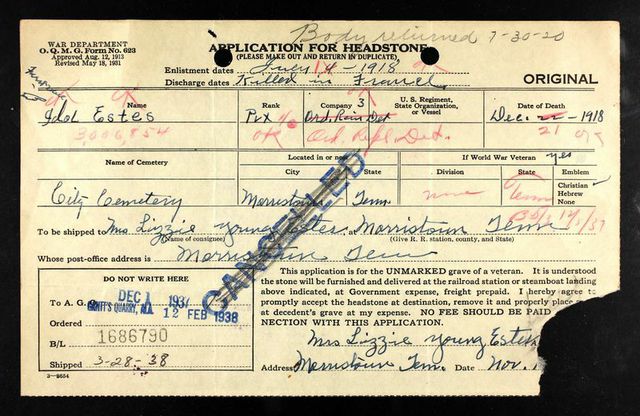 Body returned 7-30-20
WAR DEPARTMENT
O. Q. M. G. Form No. 623
Approved Aug. 12, 1913
Revised May 18, 1931
APPLICATION FOR HEADSTONE
(PLEASE MAKE OUT AND RETURN IN DUPLICATE)
Enlistment dates July 14 - 1918
Discharge dates Killed in France
ORIGINAL
Name Rank Company 3 U. S. Regiment, State Organization, or Vessel Date of Death
Idol Estes Pvt Dec. 1918
3,006,854 Ord. Repl. Det. 21
Name of Cemetery Located in or near If World War Veteran yes
City State Division State Emblem
City Cemetery Morristown Tenn. none Tenn Christian
Hebrew
None
CANCELLED
To be shipped to Mrs Lizzie Young Estes. Morristown Tenn
(Name of consignee) (Give R. R. station, county, and State)
Whose post-office address is Morristown Tenn
DO NOT WRITE HERE
To A. G. O. DEC 1 1937
12 FEB 1938
Ordered
B/L 1686790
Shipped 3-28-38
3-8654
This application is for the UNMARKED grave of a veteran. It is understood
the stone will be furnished and delivered at the railroad station or steamboat landing
above indicated, at Government expense, freight prepaid. I hereby agree to
promptly accept the headstone at destination, remove it and properly place
at decedent's grave at my expense. NO FEE SHOULD BE PAID
NECTION WITH THIS APPLICATION.
Mrs Lizzie Young Estes
Address Morristown Tenn. Date Nov.